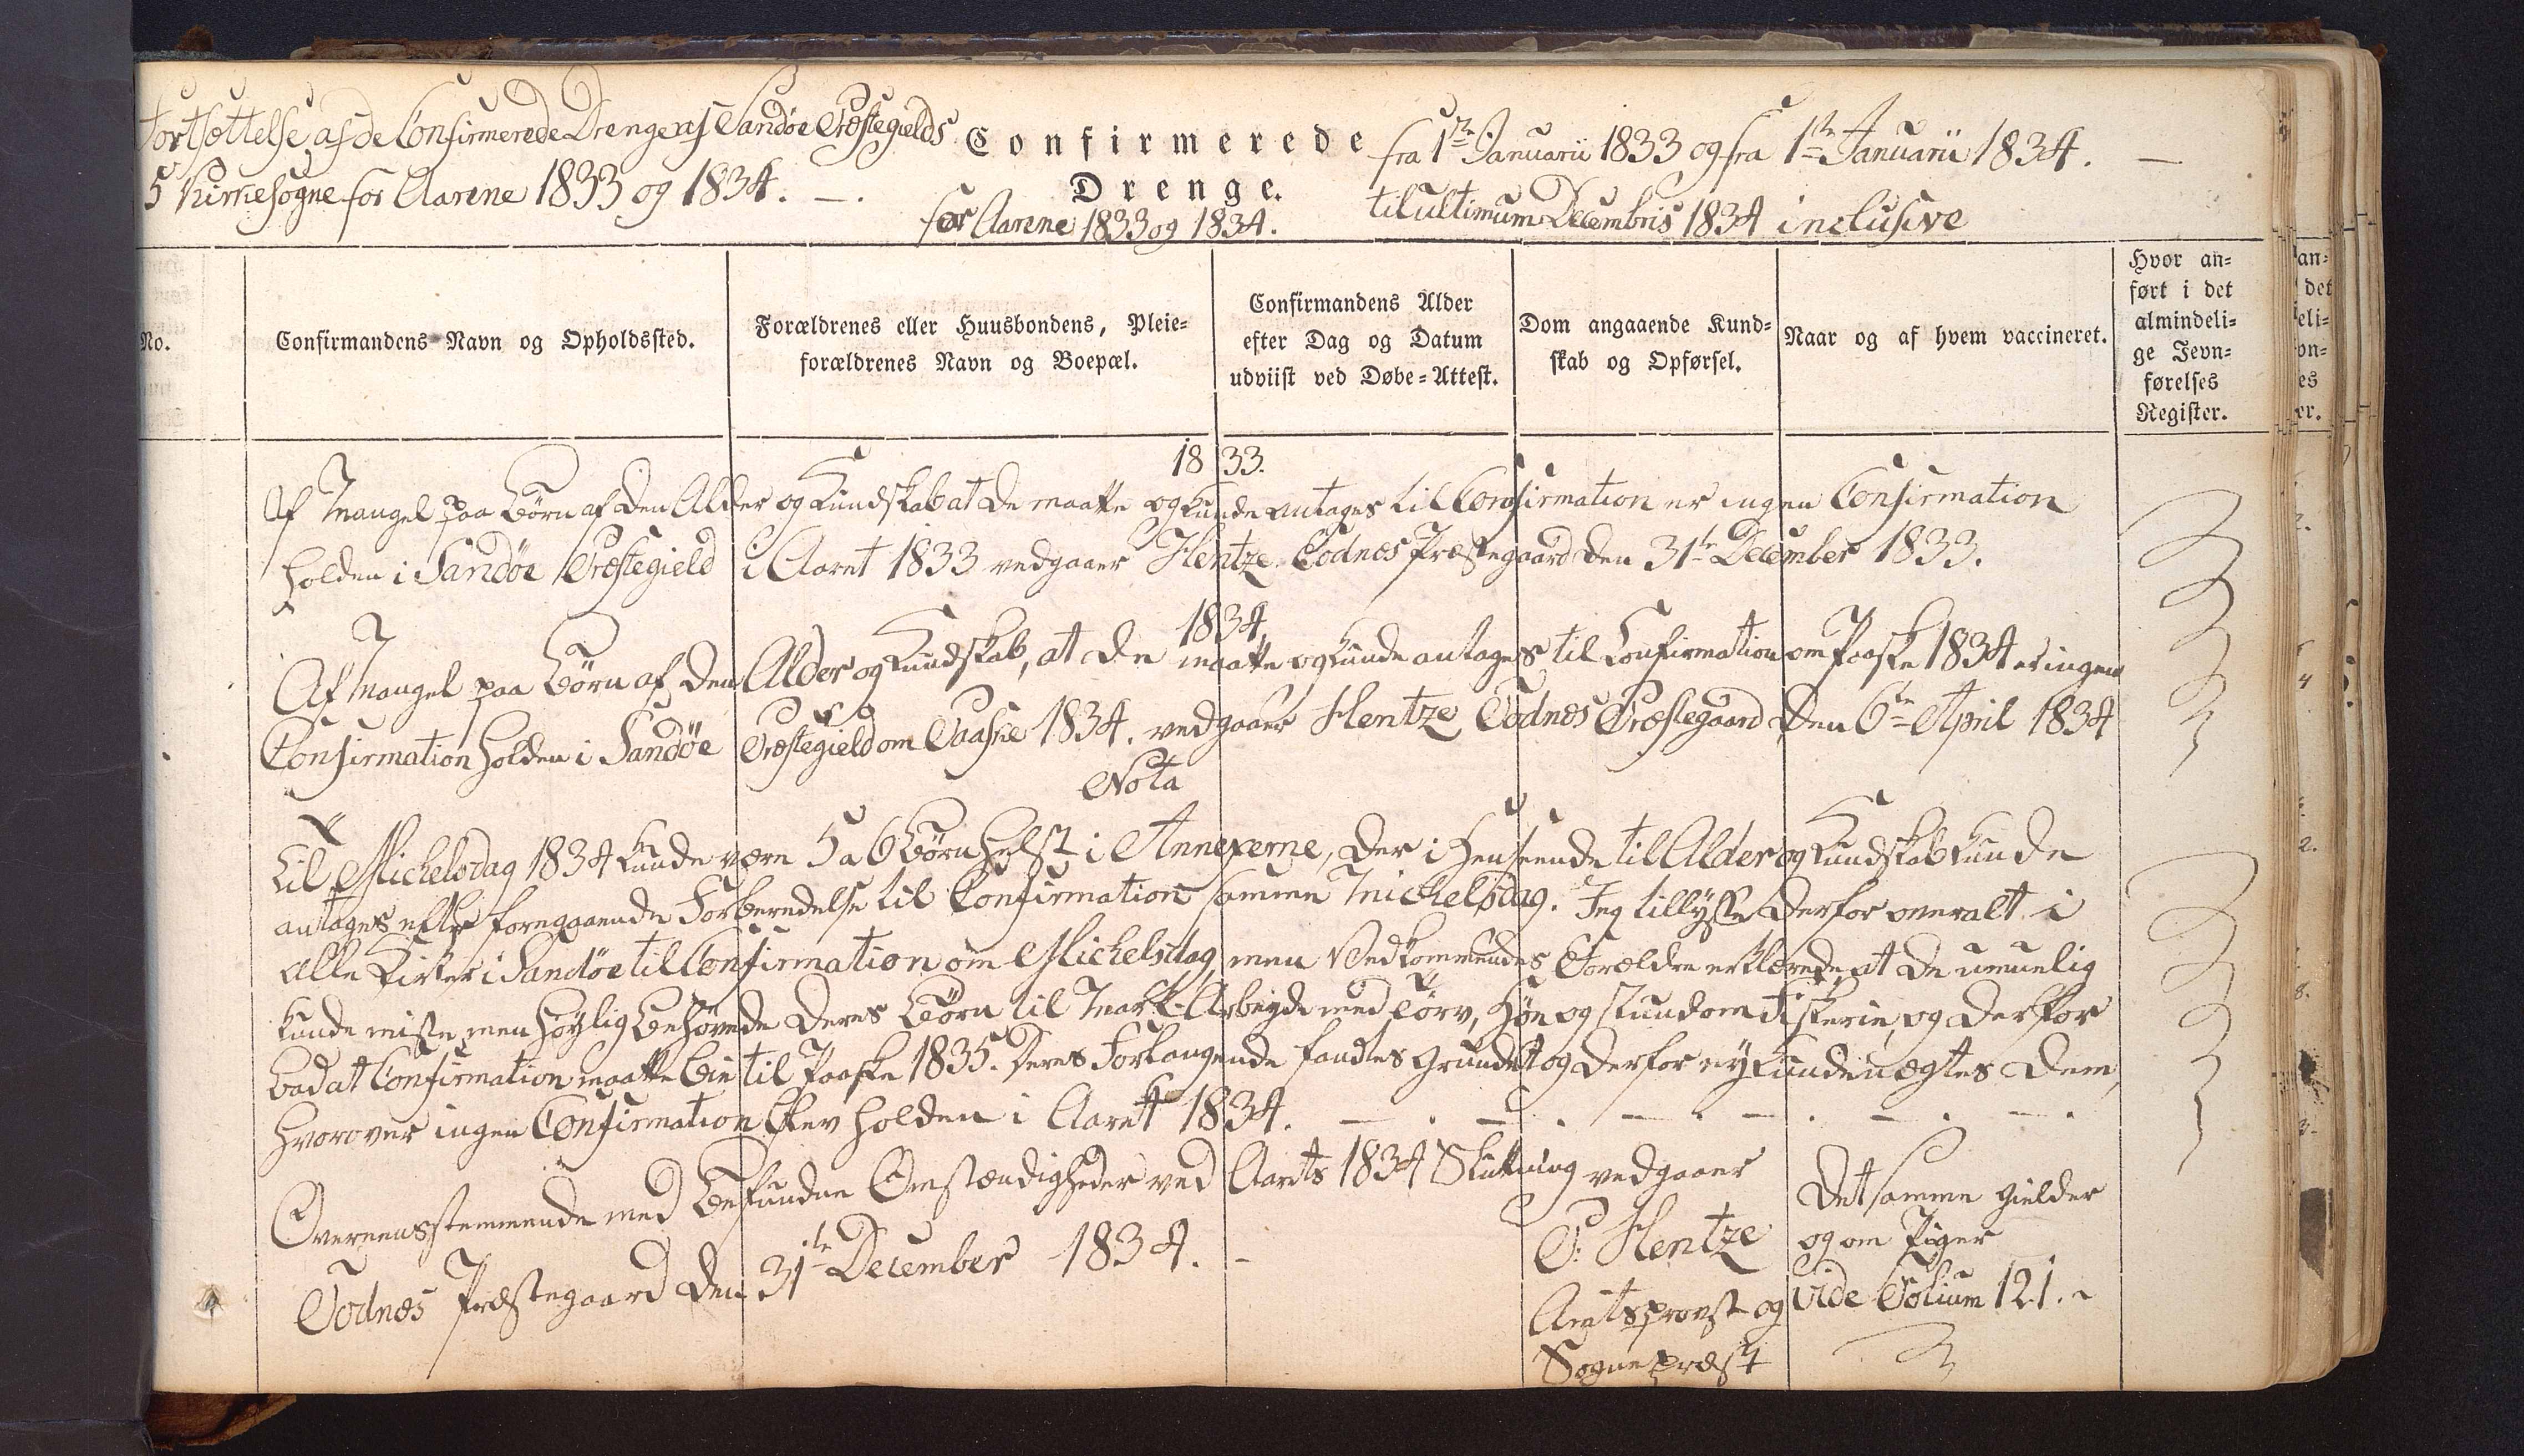 Fortsættelse af de Confirmerede Drenge af Sandøe Præstegields
5 Kirkesogne for Aarene 1833 og 1834. —.
Confirmerede
Drenge.
for Aarene 1833 og 1834.
fra 1ste Januarii 1833 og fra 1ste Januarii 1834. —
til ultimum Decembris 1834 inclusive
No.
Confirmandens Navn og Opholdssted.
Forældrenes eller Huusbondens, Pleie=
forældrenes Navn og Boepæl.
Confirmandens Alder
efter Dag og Datum
udviist ved Døbe=Attest.
Dom angaaende Kund=
skab og Opførsel.
Naar og af hvem vaccineret.
Hvor an=
ført i det
almindeli=
ge Jevn=
førelses
Register.
1833.
Af Mangel paa Børn af den Alder og Kundskab at de maatte og kunde antages til Confirmation er ingen Confirmation
holden i Sandøe Præstegield i Aaret 1833 vedgaaer Hentze. Todnes Præstegaard den 31te December 1833.
1834.
Af Mangel paa Børn af den Alder og Kundskab, at de maatte og kunde antages til Confirmation om Paaske 1834 er ingen
Confirmation holden i Sandøe Præstegield om Paaske 1834. vedgaaer Hentze Todnes Præstegaard den 6te April 1834
Nota
Til Michelsdag 1834 kunde være 5 a 6 Børn helst i Annexerne, der i Henseende til Alder og Kundskab kunde
antages efter foregaaende Forberedelse til Confirmation samme Michelsdag. Jeg tillyste derfor overalt i
alle Kirker i Sandøe til Confirmation om Michelsdag, men Vedkommendes Forældre erklærede, at de umuelig
kunde miste, men høylig behøvede deres Børn til Mark-Arbeyde med Tørv, Høe og stundom Fiskerie, og derfor
bad at Confirmation maatte bie til Paaske 1835. Deres Forlangende fandtes grundet og derfor ey kunde nægtes dem,
hvorover ingen Confirmation blev holden i Aaret 1834. — . — . — . — . — . — .
Overeensstemmende med befundne Omstændigheder ved Aarets 1834 Slutning vedgaaer
Todnes Præstegaard den 31te December 1834. -
P: Hentze
Amtsprovst og
Sognepræst
Det samme gielder
og om Piger
vide Folium 121.